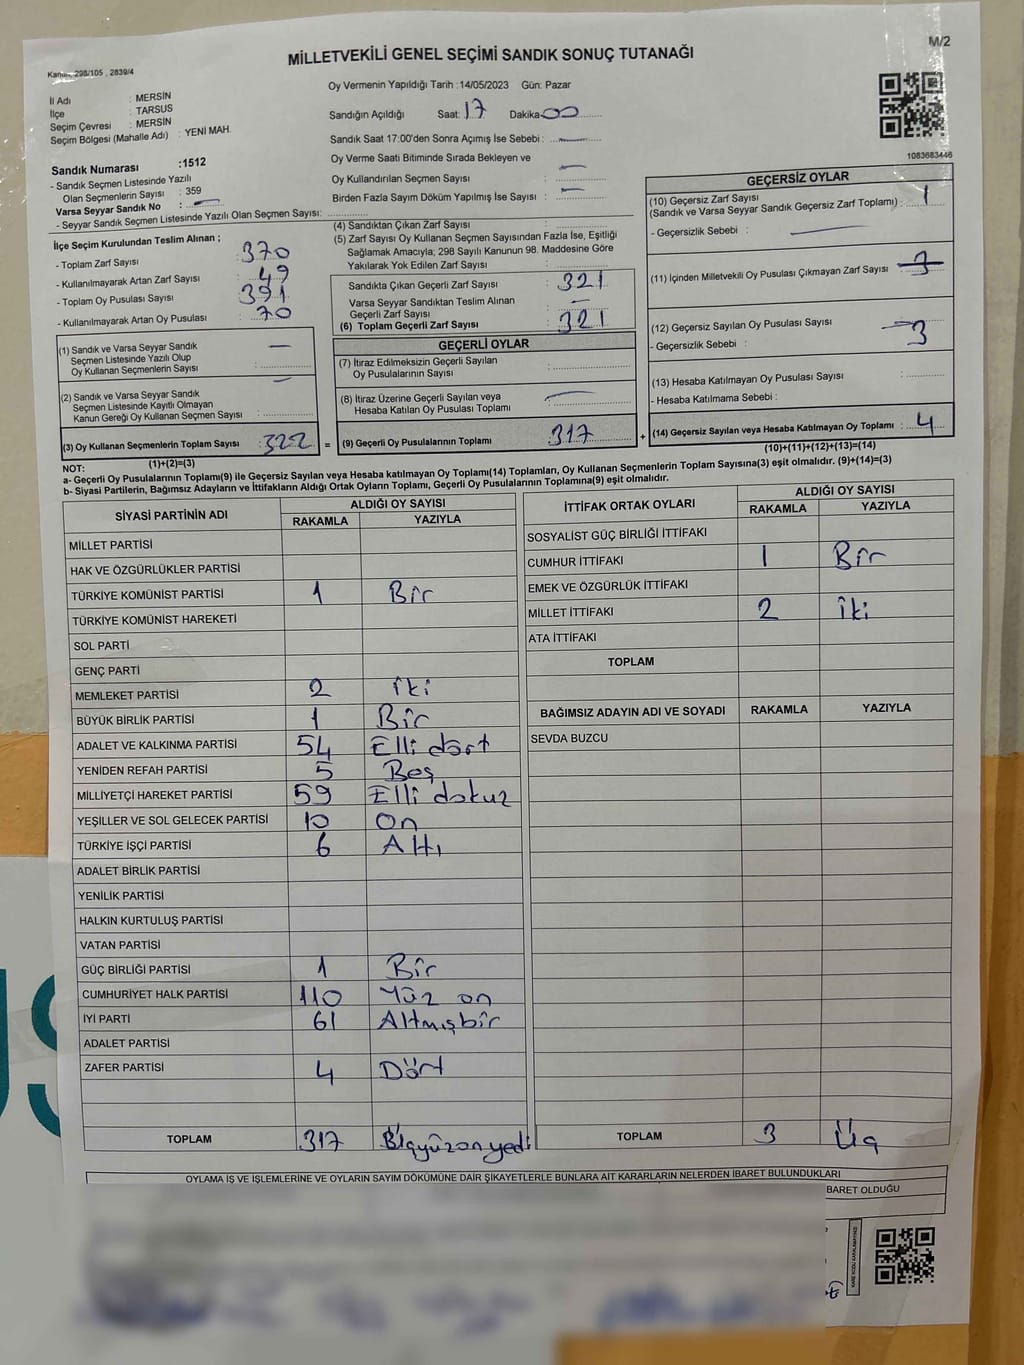 MİLLETVEKİLİ GENEL SEÇİMİ SANDIK SONUÇ TUTANAĞI
M/2
Kanun, 298/105 , 2839/4
Oy Vermenin Yapıldığı Tarih : 14/05/2023 Gün: Pazar
İl Adı : MERSİN
İlçe : TARSUS
Seçim Çevresi : MERSİN
Seçim Bölgesi (Mahalle Adı) : YENİ MAH.
Sandığın Açıldığı Saat: 17 Dakika 00
Sandık Saat 17:00'den Sonra Açımış İse Sebebi : —
Oy Verme Saati Bitiminde Sırada Bekleyen ve
Oy Kullandırılan Seçmen Sayısı : —
Birden Fazla Sayım Döküm Yapılmış İse Sayısı : —
1083683446
Sandık Numarası :1512
- Sandık Seçmen Listesinde Yazılı
Olan Seçmenlerin Sayısı : 359
Varsa Seyyar Sandık No : —
- Seyyar Sandık Seçmen Listesinde Yazılı Olan Seçmen Sayısı:
İlçe Seçim Kurulundan Teslim Alınan ;
- Toplam Zarf Sayısı : 370
- Kullanılmayarak Artan Zarf Sayısı : 49
- Toplam Oy Pusulası Sayısı : 391
- Kullanılmayarak Artan Oy Pusulası : 70
(1) Sandık ve Varsa Seyyar Sandık
Seçmen Listesinde Yazılı Olup
Oy Kullanan Seçmen Sayısı : —
(2) Sandık ve Varsa Seyyar Sandık
Seçmen Listesinde Kayıtlı Olmayan
Kanun Gereği Oy Kullanan Seçmen Sayısı : —
(3) Oy Kullanan Seçmenlerin Toplam Sayısı : 322 =
(1)+(2)=(3)
(4) Sandıktan Çıkan Zarf Sayısı :
(5) Zarf Sayısı Oy Kullanan Seçmen Sayısından Fazla İse, Eşitliği
Sağlamak Amacıyla, 298 Sayılı Kanunun 98. Maddesine Göre
Yakılarak Yok Edilen Zarf Sayısı :
Sandıkta Çıkan Geçerli Zarf Sayısı : 321
Varsa Seyyar Sandıktan Teslim Alınan
Geçerli Zarf Sayısı : —
(6) Toplam Geçerli Zarf Sayısı : 321
GEÇERLİ OYLAR
(7) İtiraz Edilmeksizin Geçerli Sayılan
Oy Pusulalarının Sayısı :
(8) İtiraz Üzerine Geçerli Sayılan veya
Hesaba Katılan Oy Pusulası Toplamı : —
(9) Geçerli Oy Pusulalarının Toplamı : 317 +
GEÇERSİZ OYLAR
(10) Geçersiz Zarf Sayısı
(Sandık ve Varsa Seyyar Sandık Geçersiz Zarf Toplamı) : 1
- Geçersizlik Sebebi : —
(11) İçinden Milletvekili Oy Pusulası Çıkmayan Zarf Sayısı :
(12) Geçersiz Sayılan Oy Pusulası Sayısı : 3
- Geçersizlik Sebebi :
(13) Hesaba Katılmayan Oy Pusulası Sayısı :
- Hesaba Katılmama Sebebi :
(14) Geçersiz Sayılan veya Hesaba Katılmayan Oy Toplamı : 4
(10)+(11)+(12)+(13)=(14)
NOT:
a- Geçerli Oy Pusulalarının Toplamı(9) ile Geçersiz Sayılan veya Hesaba katılmayan Oy Toplamı(14) Toplamları, Oy Kullanan Seçmenlerin Toplam Sayısına(3) eşit olmalıdır. (9)+(14)=(3)
b- Siyasi Partilerin, Bağımsız Adayların ve İttifakların Aldığı Ortak Oyların Toplamı, Geçerli Oy Pusulalarının Toplamına(9) eşit olmalıdır.
SİYASİ PARTİNİN ADI ALDIĞI OY SAYISI
RAKAMLA YAZIYLA
MİLLET PARTİSİ
HAK VE ÖZGÜRLÜKLER PARTİSİ
TÜRKİYE KOMÜNİST PARTİSİ 1 Bir
TÜRKİYE KOMÜNİST HAREKETİ
SOL PARTİ
GENÇ PARTİ
MEMLEKET PARTİSİ 2 iki
BÜYÜK BİRLİK PARTİSİ 1 Bir
ADALET VE KALKINMA PARTİSİ 54 Elli dört
YENİDEN REFAH PARTİSİ 5 Beş
MİLLİYETÇİ HAREKET PARTİSİ 59 Elli dokuz
YEŞİLLER VE SOL GELECEK PARTİSİ 10 On
TÜRKİYE İŞÇİ PARTİSİ 6 Altı
ADALET BİRLİK PARTİSİ
YENİLİK PARTİSİ
HALKIN KURTULUŞ PARTİSİ
VATAN PARTİSİ
GÜÇ BİRLİĞİ PARTİSİ 1 Bir
CUMHURİYET HALK PARTİSİ 110 Yüz on
İYİ PARTİ 61 Altmışbir
ADALET PARTİSİ
ZAFER PARTİSİ 4 Dört
TOPLAM 317 Üçyüzonyedi
İTTİFAK ORTAK OYLARI ALDIĞI OY SAYISI
RAKAMLA YAZIYLA
SOSYALİST GÜÇ BİRLİĞİ İTTİFAKI
CUMHUR İTTİFAKI 1 Bir
EMEK VE ÖZGÜRLÜK İTTİFAKI
MİLLET İTTİFAKI 2 iki
ATA İTTİFAKI
TOPLAM
BAĞIMSIZ ADAYIN ADI VE SOYADI RAKAMLA YAZIYLA
SEVDA BUZCU
TOPLAM 3 Üç
OYLAMA İŞ VE İŞLEMLERİNE VE OYLARIN SAYIM DÖKÜMÜNE DAİR ŞİKAYETLERLE BUNLARA AİT KARARLARIN NELERDEN İBARET BULUNDUKLARI
BARET OLDUĞU